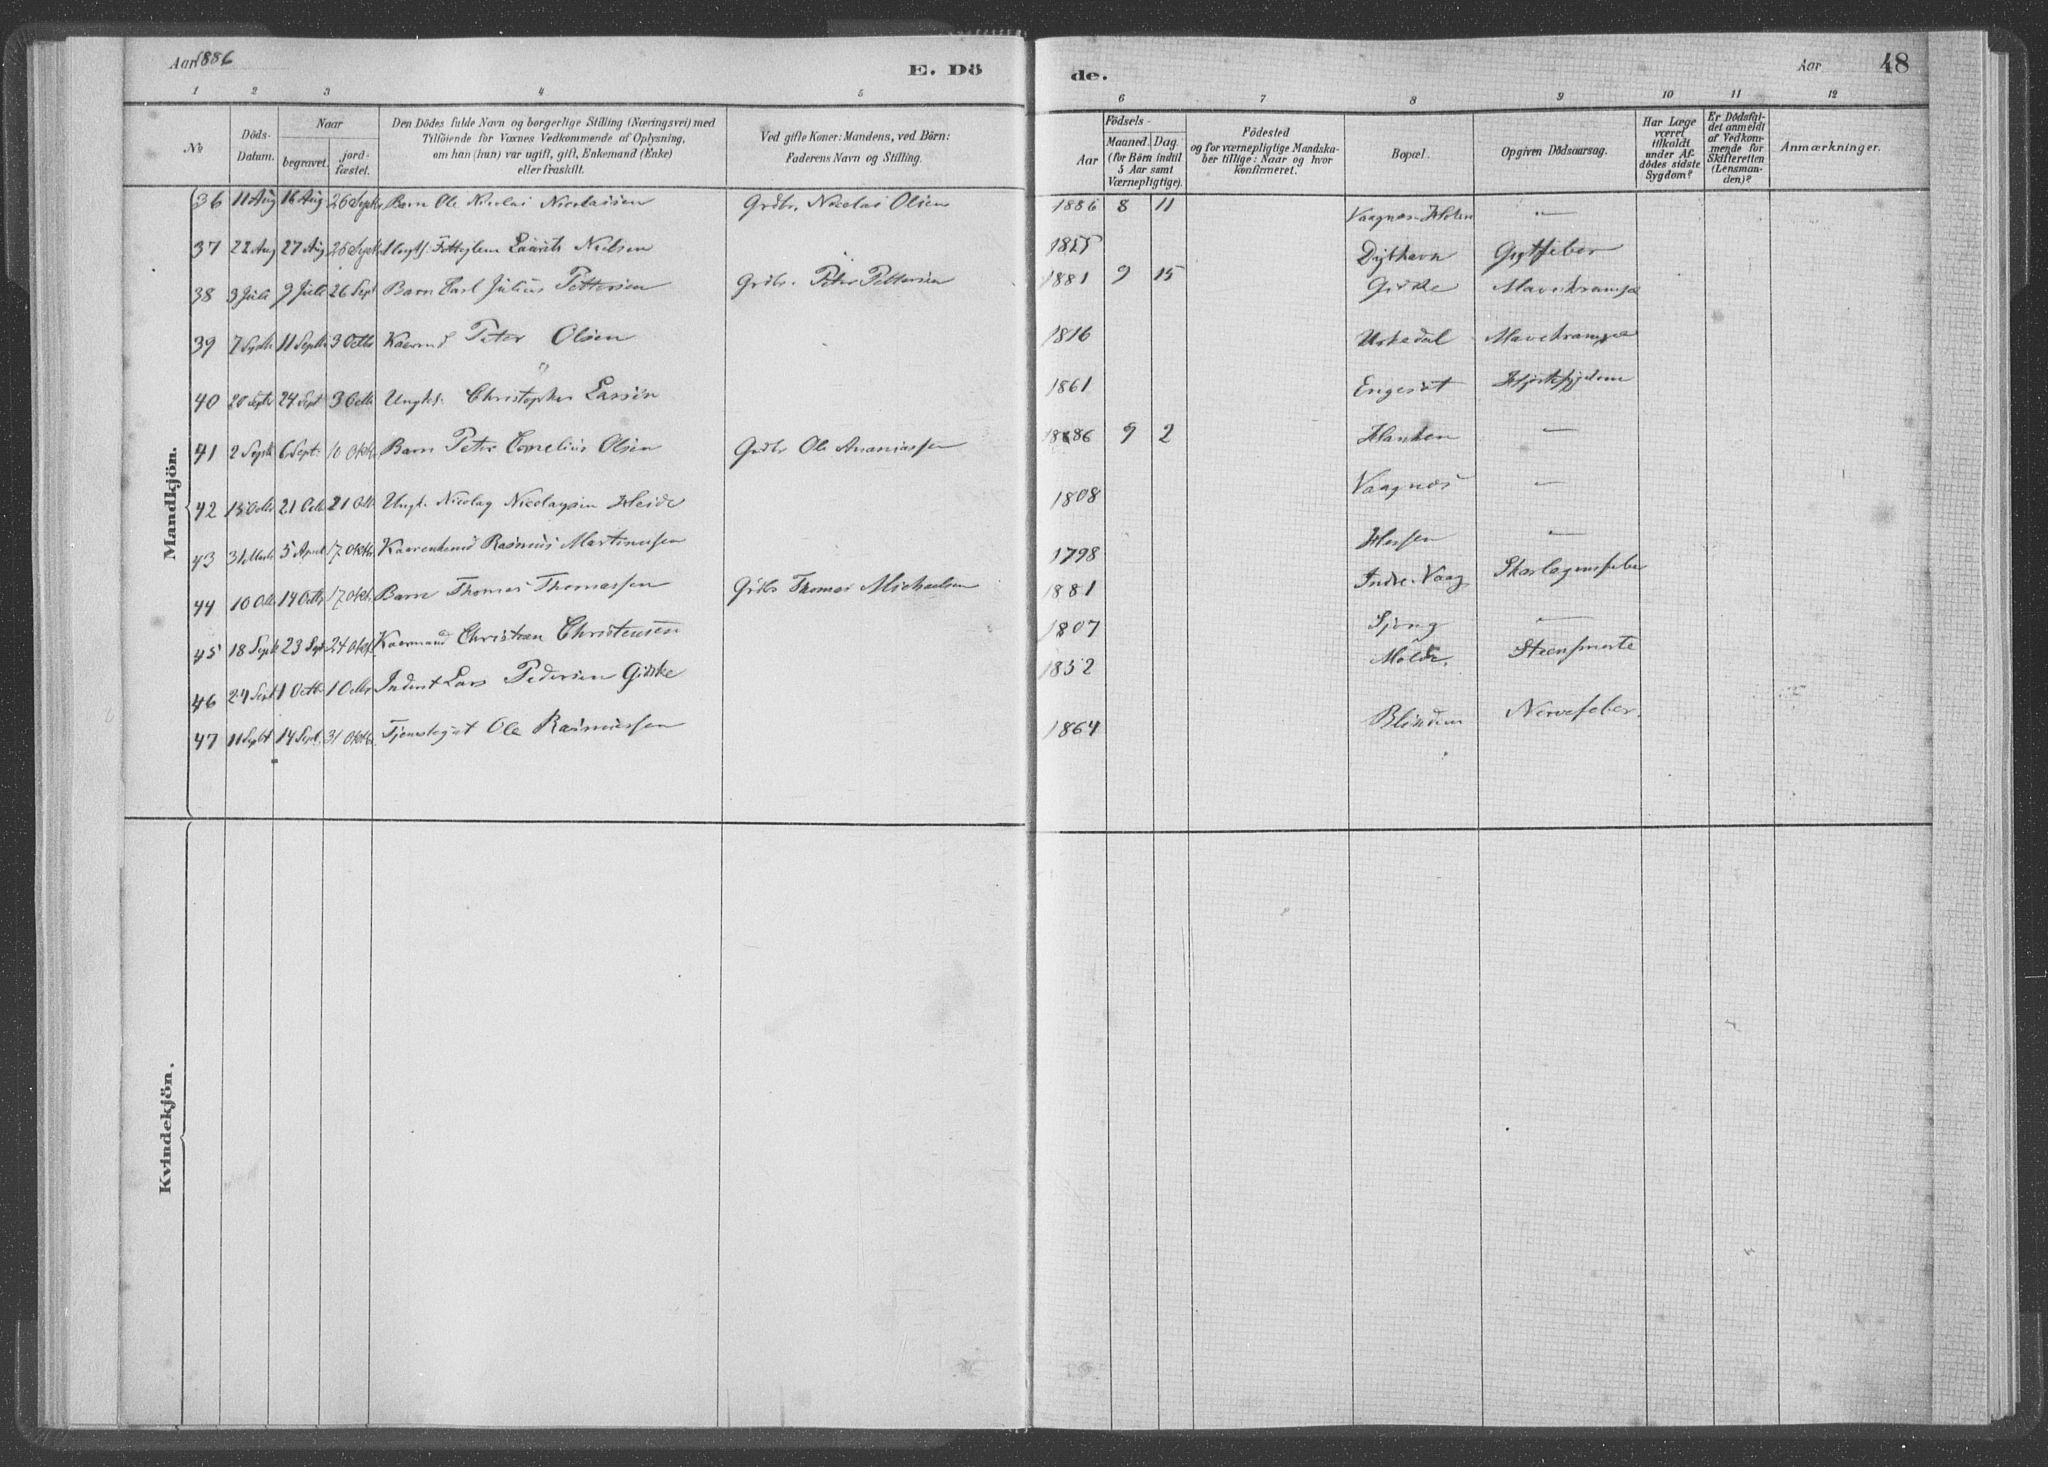 Aar 1886 E. Dö de. Aar 48
1 2 3 4 5 6 7 8 9 10 11 12
No Döds-Datum. Naar begravet. jord-fæstet. Den Dödes fulde Navn og borgerlige Stilling (Næringsvei) med Tilföiende for Voxnes Vedkommende af Oplysning, om han (hun) var ugift, gift, Enkemand (Enke) eller fraskilt. Ved gifte Koner: Mandens, ved Börn: Faderens Navn og Stilling. Födsels- Aar Maaned. Dag. (for Börn indtil 5 Aar samt Værnepligtige). Födested og for værnepligtige Mandskaber tillige: Naar og hvor konfirmeret. Bopæl. Opgiven Dödsaarsag. Har Læge været tilkaldt under Afdödes sidste Sygdom? Er Dödsfaldet anmeldt af Vedkommende for Skifteretten (Lensmanden)? Anmærkninger.
Mandkjön.
36 11 Aug 16 Aug 26 Septr Barn Ole Nicolai Nicolaisen Grdbr. Nicolai Olsen 1886 8 11 Vaagnes Holen —
37 22 Aug 27 Aug 26 Septr Laurits Nielsen 1855 Gigtfeber
38 3 Juli 9 Juli 26 Sept Barn Carl Julius Pettersen Grdbr. Peter Pettersen 1881 9 15 Giske Mavekrampe
39 7 Septr 11 Septr 3 Octbr Kaarmd Peter Olsen 1816 Urkedal Mavekrampe
40 20 Septr 24 Sept 3 Octb Ungk. Christopher Larsen 1861 Engeset
41 2 Septb 6 Sept. 10 Oktbr Barn Peter Cornelius Olsen Grdbr Ole Ananiassen 1886 9 2 —
42 15 Octb 21 Octb 21 Octb. Ungk. Nicolay Nicolaysen Heide 1808 Vaagnes —
43 31 Marts 5 April 17 Oktbr Kaarenkemd Rasmus Martinusen 1798 —
44 10 Octb 14 Octbr 17 Oktb. Barn Thomas Thomassen Grdbr Thomas Michaelsen 1881 Indre-Vaag Skarlagensfeber
45 18 Septb 23 Sept 24 Oktbr. Kaarmand Christian Christensen 1807 —
46 24 Sept 1 Octbr 1 Octbr Inderst Lars Pedersen Giske 1852 Molde. Steensmerte
47 11 Septbr 14 Sept. 31 Oktbr. Tjenestegut Ole Rasmussen 1864 Blindem Nervefeber.
Kvindekjön.